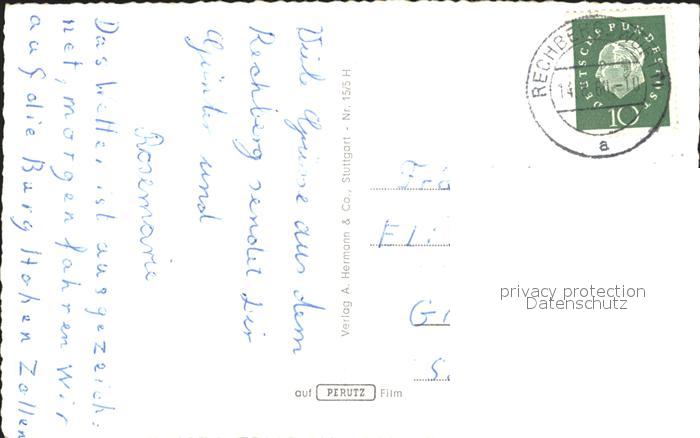 Viele Grüsse aus dem
Rechberg sendet Dir
Günter und
Rosemarie
Das Wetter ist ausgezeich:
net, morgen fahren wir
auf die Burg Hohen Zollen
Verlag A. Hermann & Co., Stuttgart - Nr. 15/5 H
auf PERUTZ Film
DEUTSCHE BUNDESPOST
10
RECHBERG
14.
a
Eli
privacy protection
Datenschutz